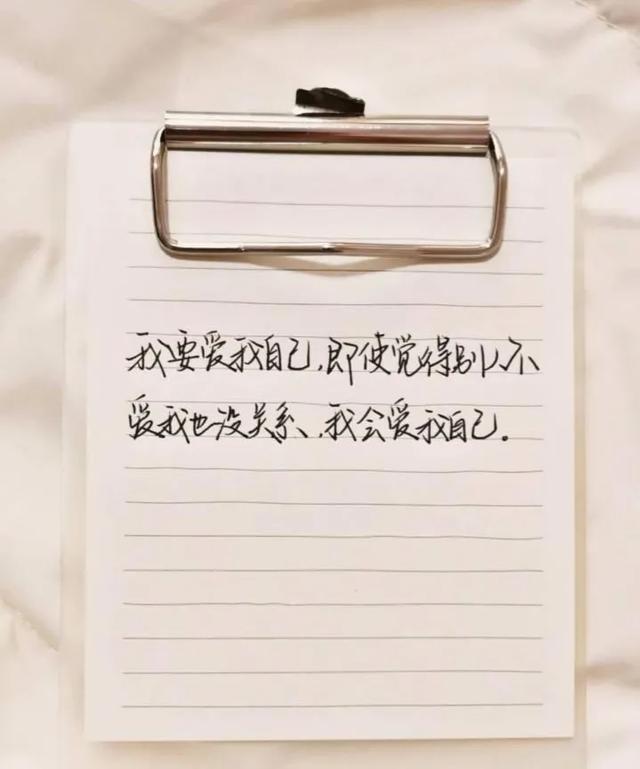 我要爱我自己,即使觉得别人不
爱我也没关系、我会爱我自己。